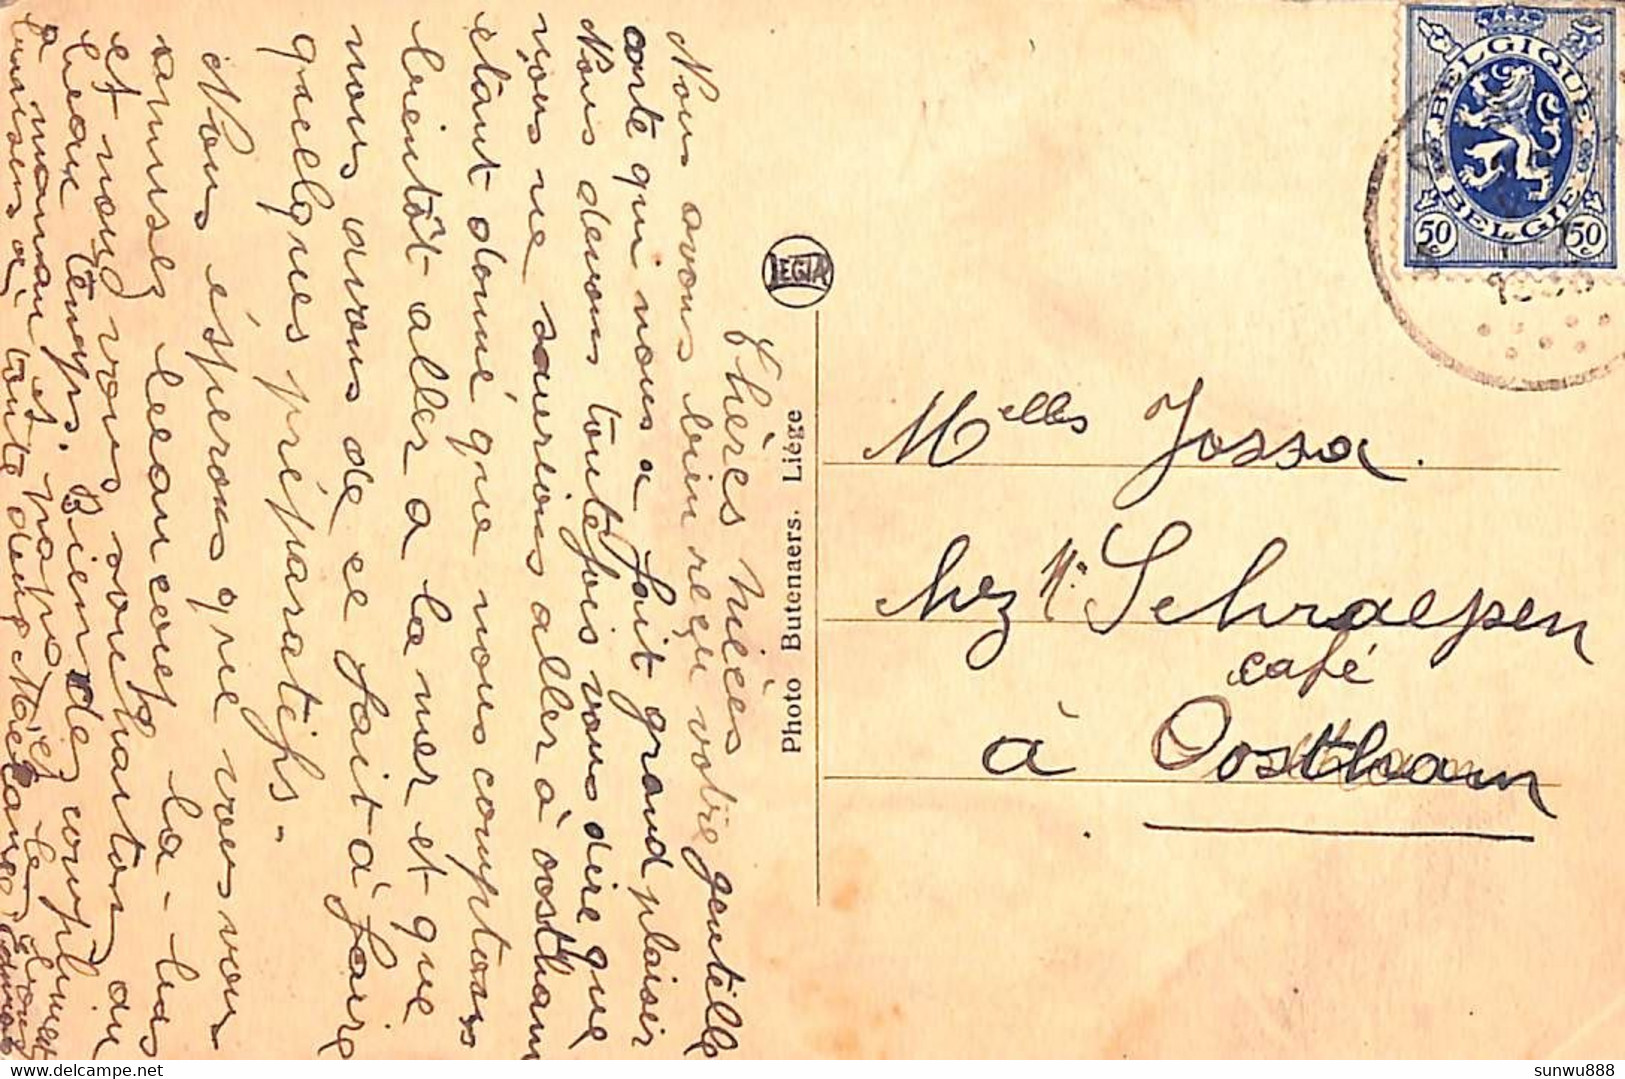 Chères nièces
Nous avons bien reçu votre gentille
carte qui nous a fait grand plaisir
Nous devons toutefois vous dire que
nous ne saurions aller à oostham
étant donné que nous comptons
bientôt aller a la mer et que
nous avons de ce fait à faire
quelques préparatifs.
Nous éspérons que vous vous
amusez beaucoup la-bas
et nous vous souhaitons du
beau temps. Bien des compliments
a maman et papa et les
baisers à toute deux
LEGIA
Photo Butenaers. Liége
BELGIQUE
BELGIE
50c
50c
Melles Jossa.
chez Mr Schraepen
café
à Oostham
sunwu888